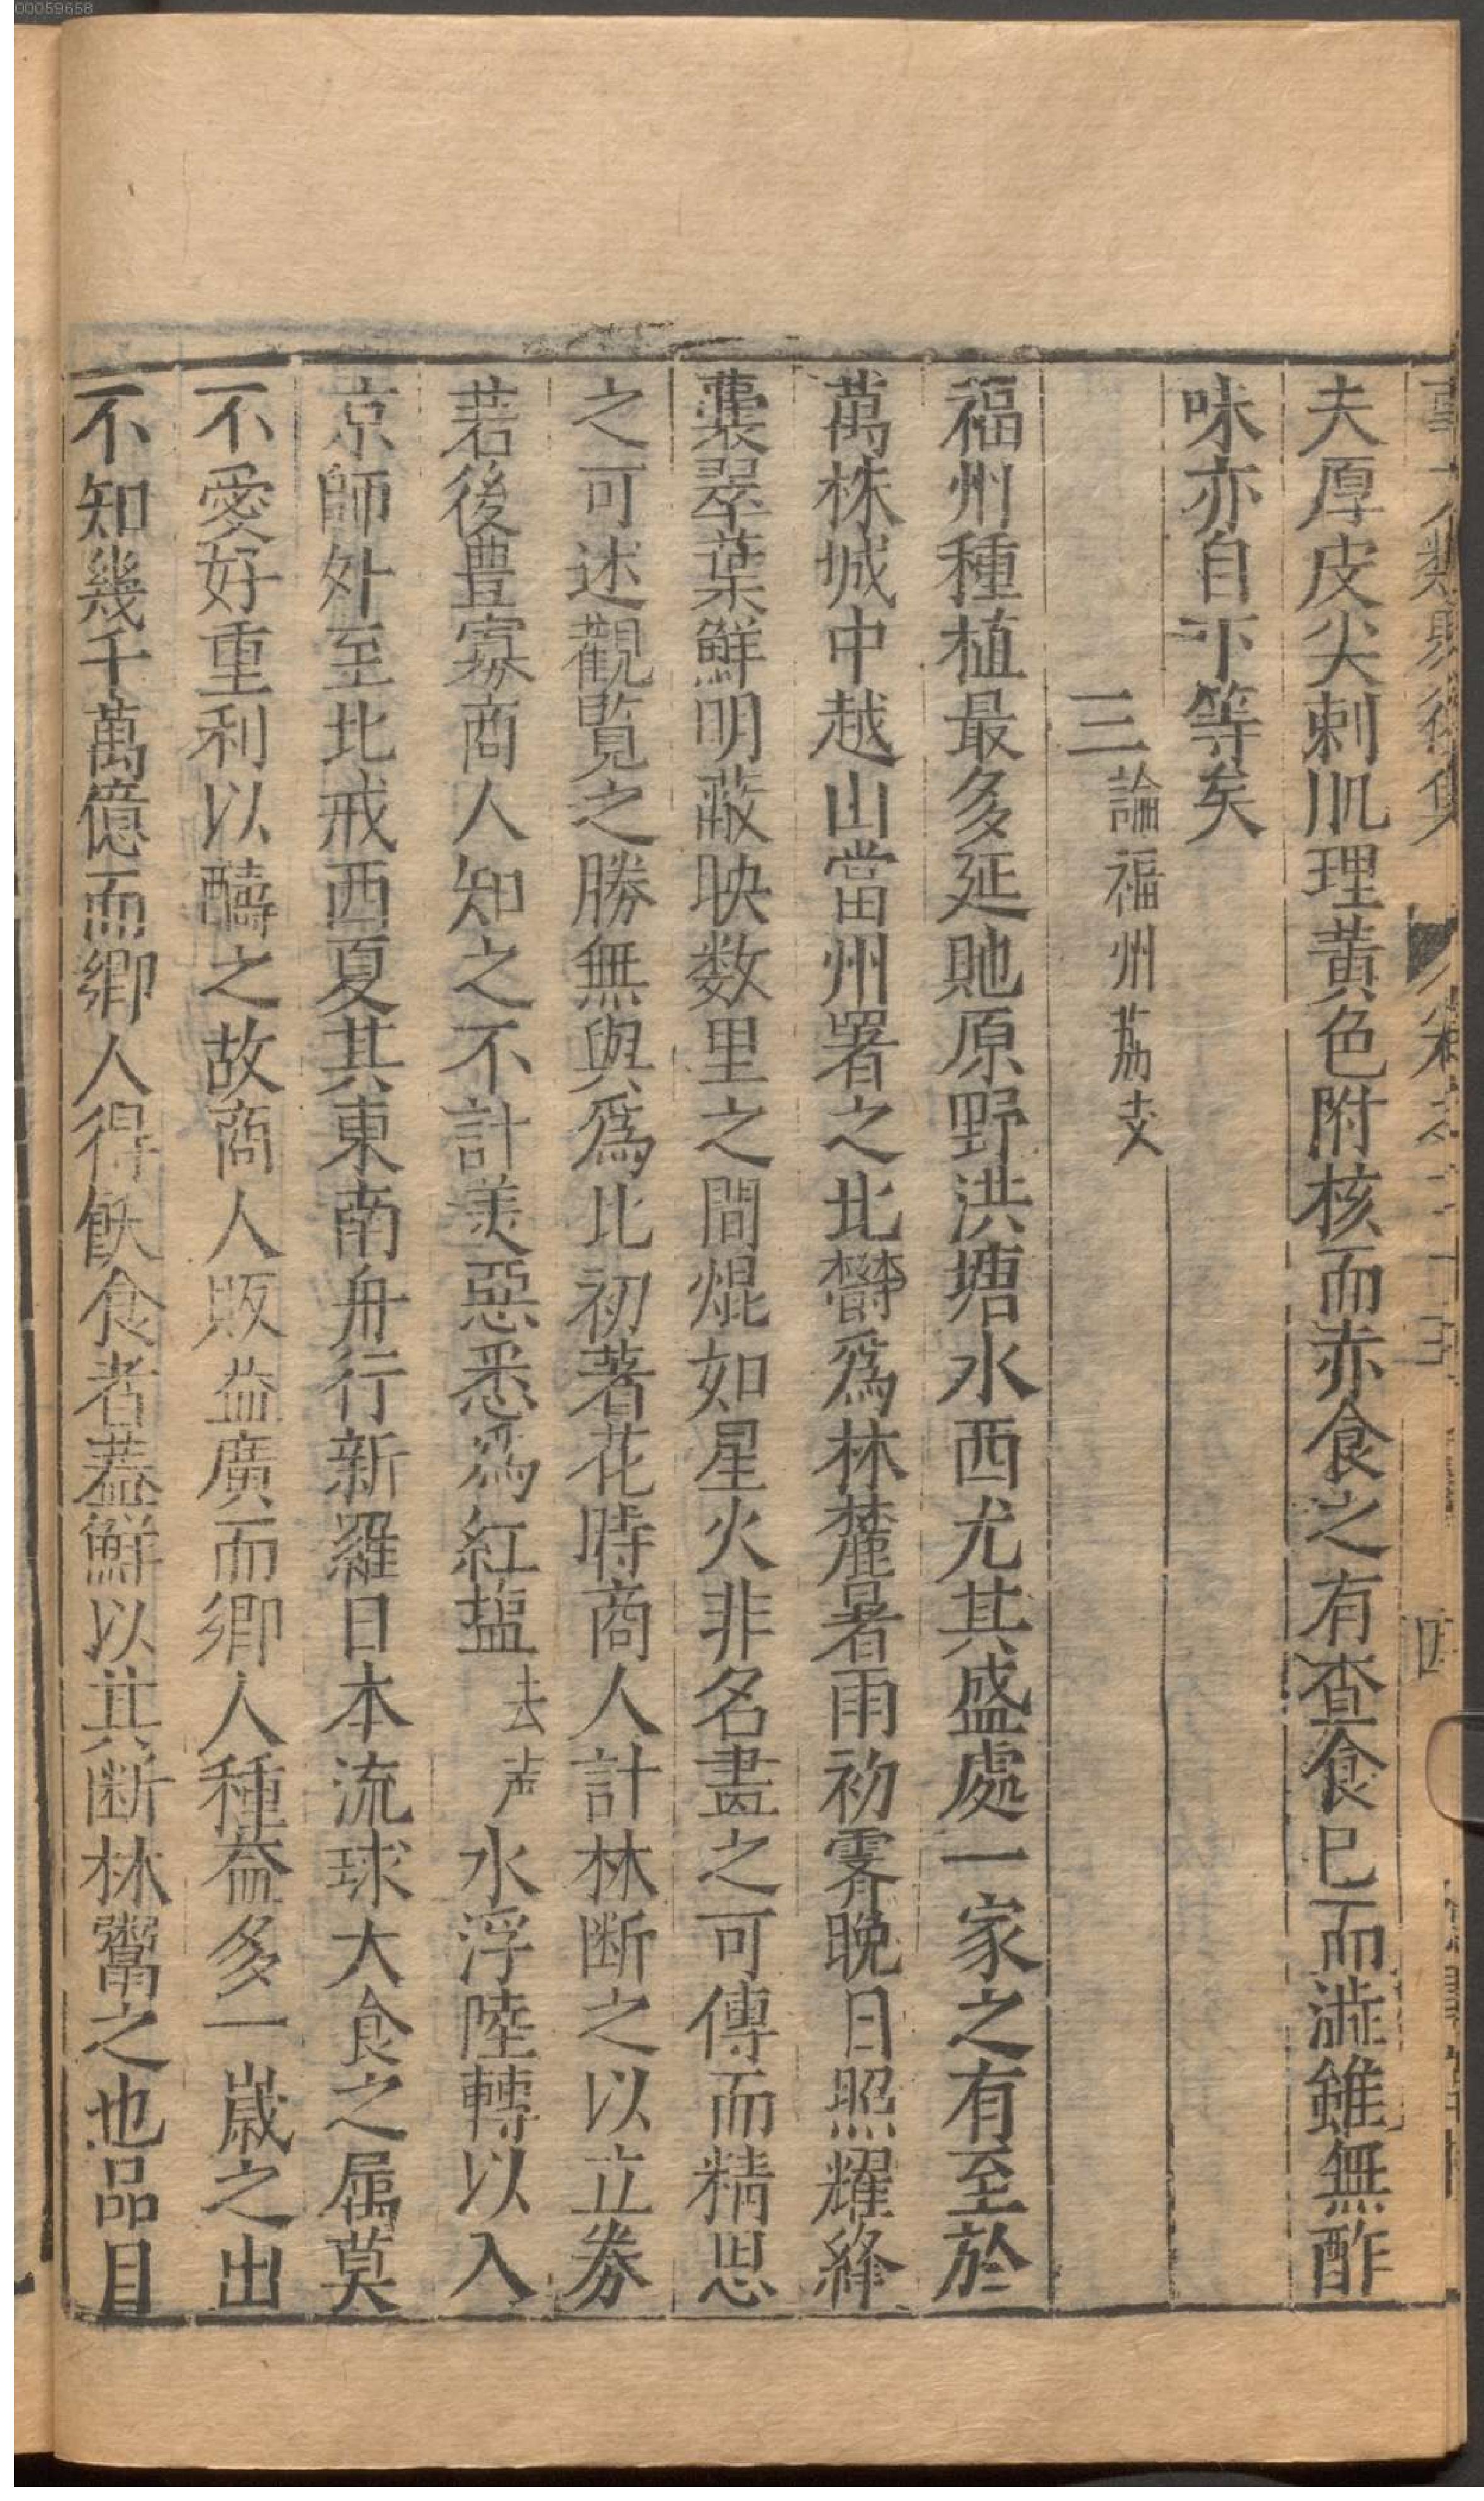 00059658
夫厚皮尖刺肌理黄色附核而赤食之有查食已而澁雖無酢
味亦自下等矣
三 論福州荔支
福州種植最多延貤原野洪塘水西尤其盛處一家之有至於
萬株城中越山當州署之北欝爲林麓暑雨初霽晚日照耀絳
囊翠葉鮮明蔽映数里之間焜如星火非名畫之可傳而精思
之可述觀覧之勝無與爲比初著花時商人計林断之以立券
若後豊寡商人知之不計羙惡悉爲紅塩去声水浮陸轉以入
京師外至北戒西夏其東南舟行新羅日本流球大食之属莫
不愛好重利以醻之故商人販益廣而鄉人種益多一歲之出
不知幾千萬億而鄉人得飫食者葢鮮以其断林鬻之也品目